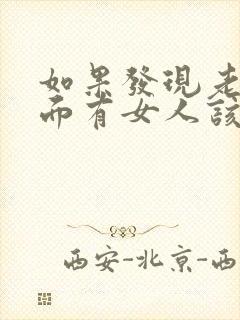 如果發現老
而有女人該
西安-北京-西